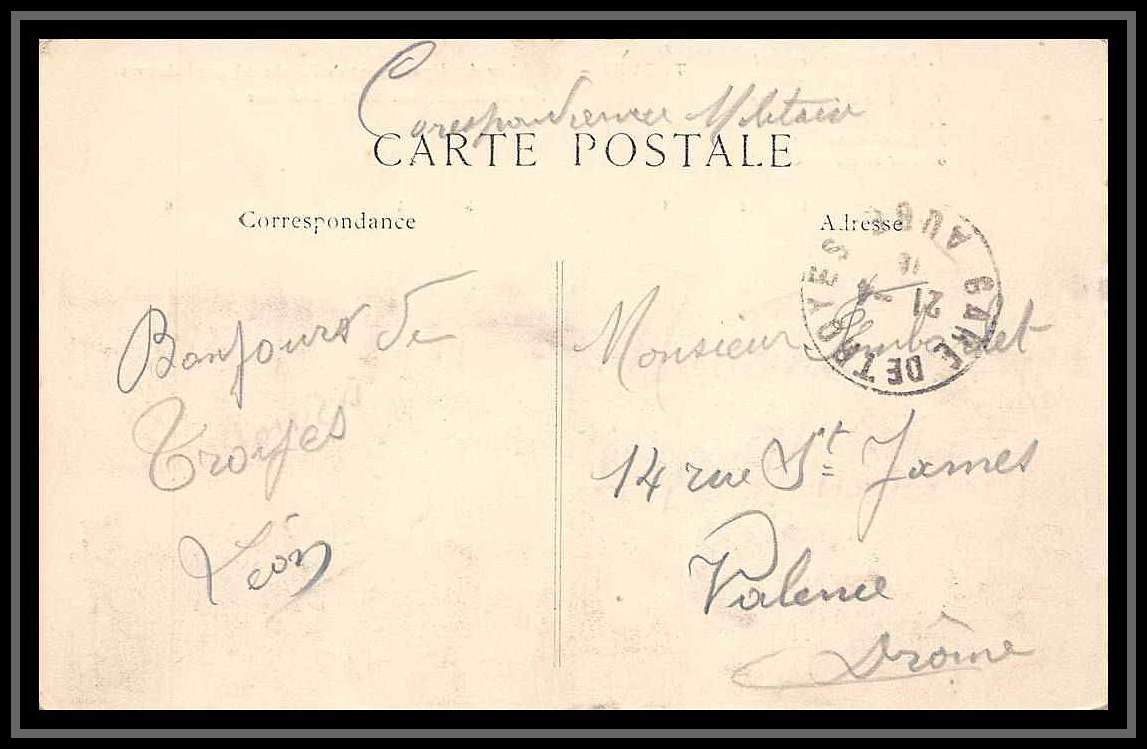 Corespondence Militaire
CARTE POSTALE
Correspondance
Adresse
GARE DE TROYES
AUBE
21
Bonjours de
Troyes
Léon
Monsieur
14 rue St James
Valence
Drôme